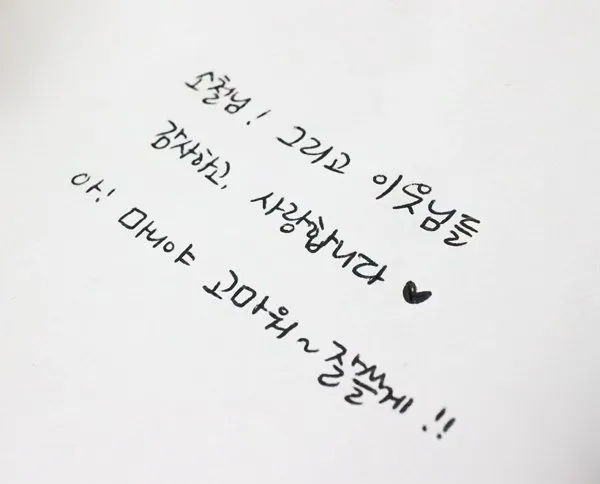 소철님! 그리고 이웃님들
감사하고, 사랑합니다 ♥
아! 마니야 고마워~ 잘쓸게!!